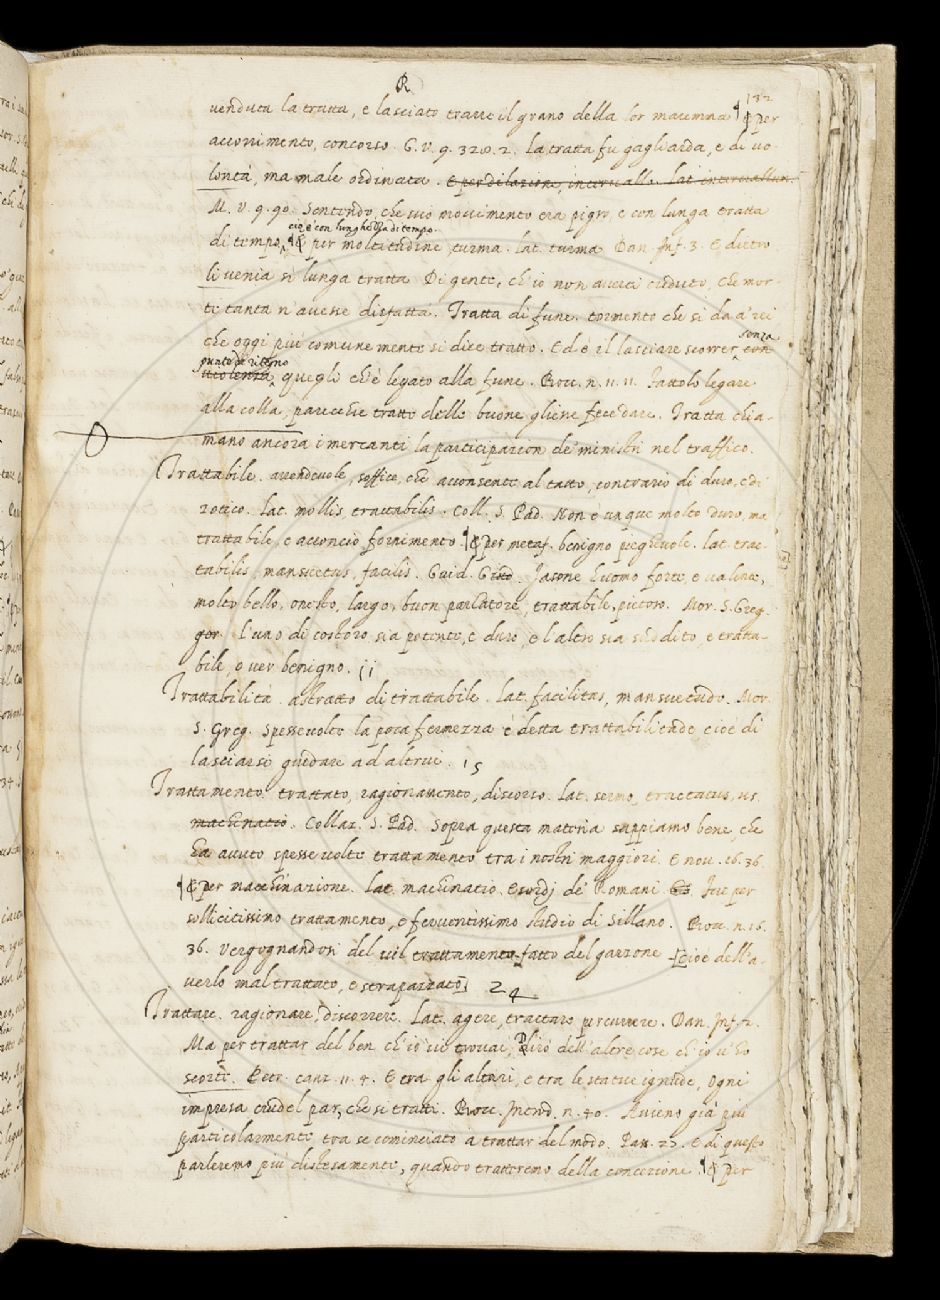 R
132
venduta la tratta, e lasciato trarre il grano della lor maremma ¶ per
accorrimento, concorso. G. V. 9. 320. 2. la tratta fu gagliarda, e di vo-
lontà, ma male ordinata. E per dilazione, intervallo. lat. intervallum.
M. V. 9. 90. Sentendo, che suo movimento era pigro, e con lunga tratta
cioè con lunghezza di tempo.
di tempo, ¶ per moltitudine, turma. lat. turma. Dan. Inf. 3. E dietro
li venia sì lunga tratta Di gente, ch'io non averei creduto, che mor-
te tanta n'avesse disfatta. Tratta di fune. tormento che si da a' rei
che oggi piu comunemente si dice tratto. Ed è il lasciare scorrer, con
senza
punto di ritegno
violenza, quegli ch'è legato alla fune. Bocc. n. 11. 11. Fattolo legare
alla colla, parecchie tratte delle buone gliene fece dare. Tratta chia-
mano ancora i mercanti la participazion de' ministri nel traffico.
Trattabile. arrendevole, soffice, che acconsente al tatto, contrario di duro, e di
zotico. Lat. mollis, tractabilis. Coll. S. Pad. Non è unque molto duro, ma
trattabile, e acconcio fornimento. ¶ per metaf. benigno pieghevole. lat. trac-
tabilis, mansuetus, facilis. Guid. G. Jasone huomo forte, e valente,
molto bello, onesto, largo, buon parlatore, trattabile, pietoso. Mor. S. Greg.
gor. L'uno di costoro sia potente, e duro, e l'altro sia suddito, e tratta-
bile, o ver benigno. 11
Trattabilità. astratto di trattabile. Lat. facilitas, mansuetudo. Mor.
S. Greg. Spessevolte la poca fermezza è detta trattabilitade cioè di
lasciarsi guidare ad altrui. 15
Trattamento. trattato, ragionamento, discorso. Lat. sermo, tractatus, us.
machinatio. Collaz. S. Pad. Sopra questa materia sappiamo bene, che
ha avuto spesse volte trattamento tra i nostri maggiori. E nov. 16. 36.
¶ per macchinazione. lat. machinatio. de' Romani. Jue per
sollicitissimo trattamento, e ferventissimo studio di Sillano. Bocc. n. 16.
36. Vergognandosi del vil trattamento fatto del garzone [cioè dell'a-
verlo mal trattato, e strapazzato] 24
Trattare. ragionare, discorrere. Lat. agere, tractare percurrere. Dan. Inf. 1.
Ma per trattar del ben ch'io vi trovai, Dirò dell'altre cose ch'io v'ho
scorte. Petr. canz. 11. 4. E tra gli altari, e tra le statue ignude, Ogni
impresa crudel par, che si tratti. Bocc. Introd. n. 40. Avieno già piu
particolarmente tra se cominciato a trattar del modo. Pass. 27. E di questo
parleremo piu distesamente, quando tratteremo della concezione. ¶ per